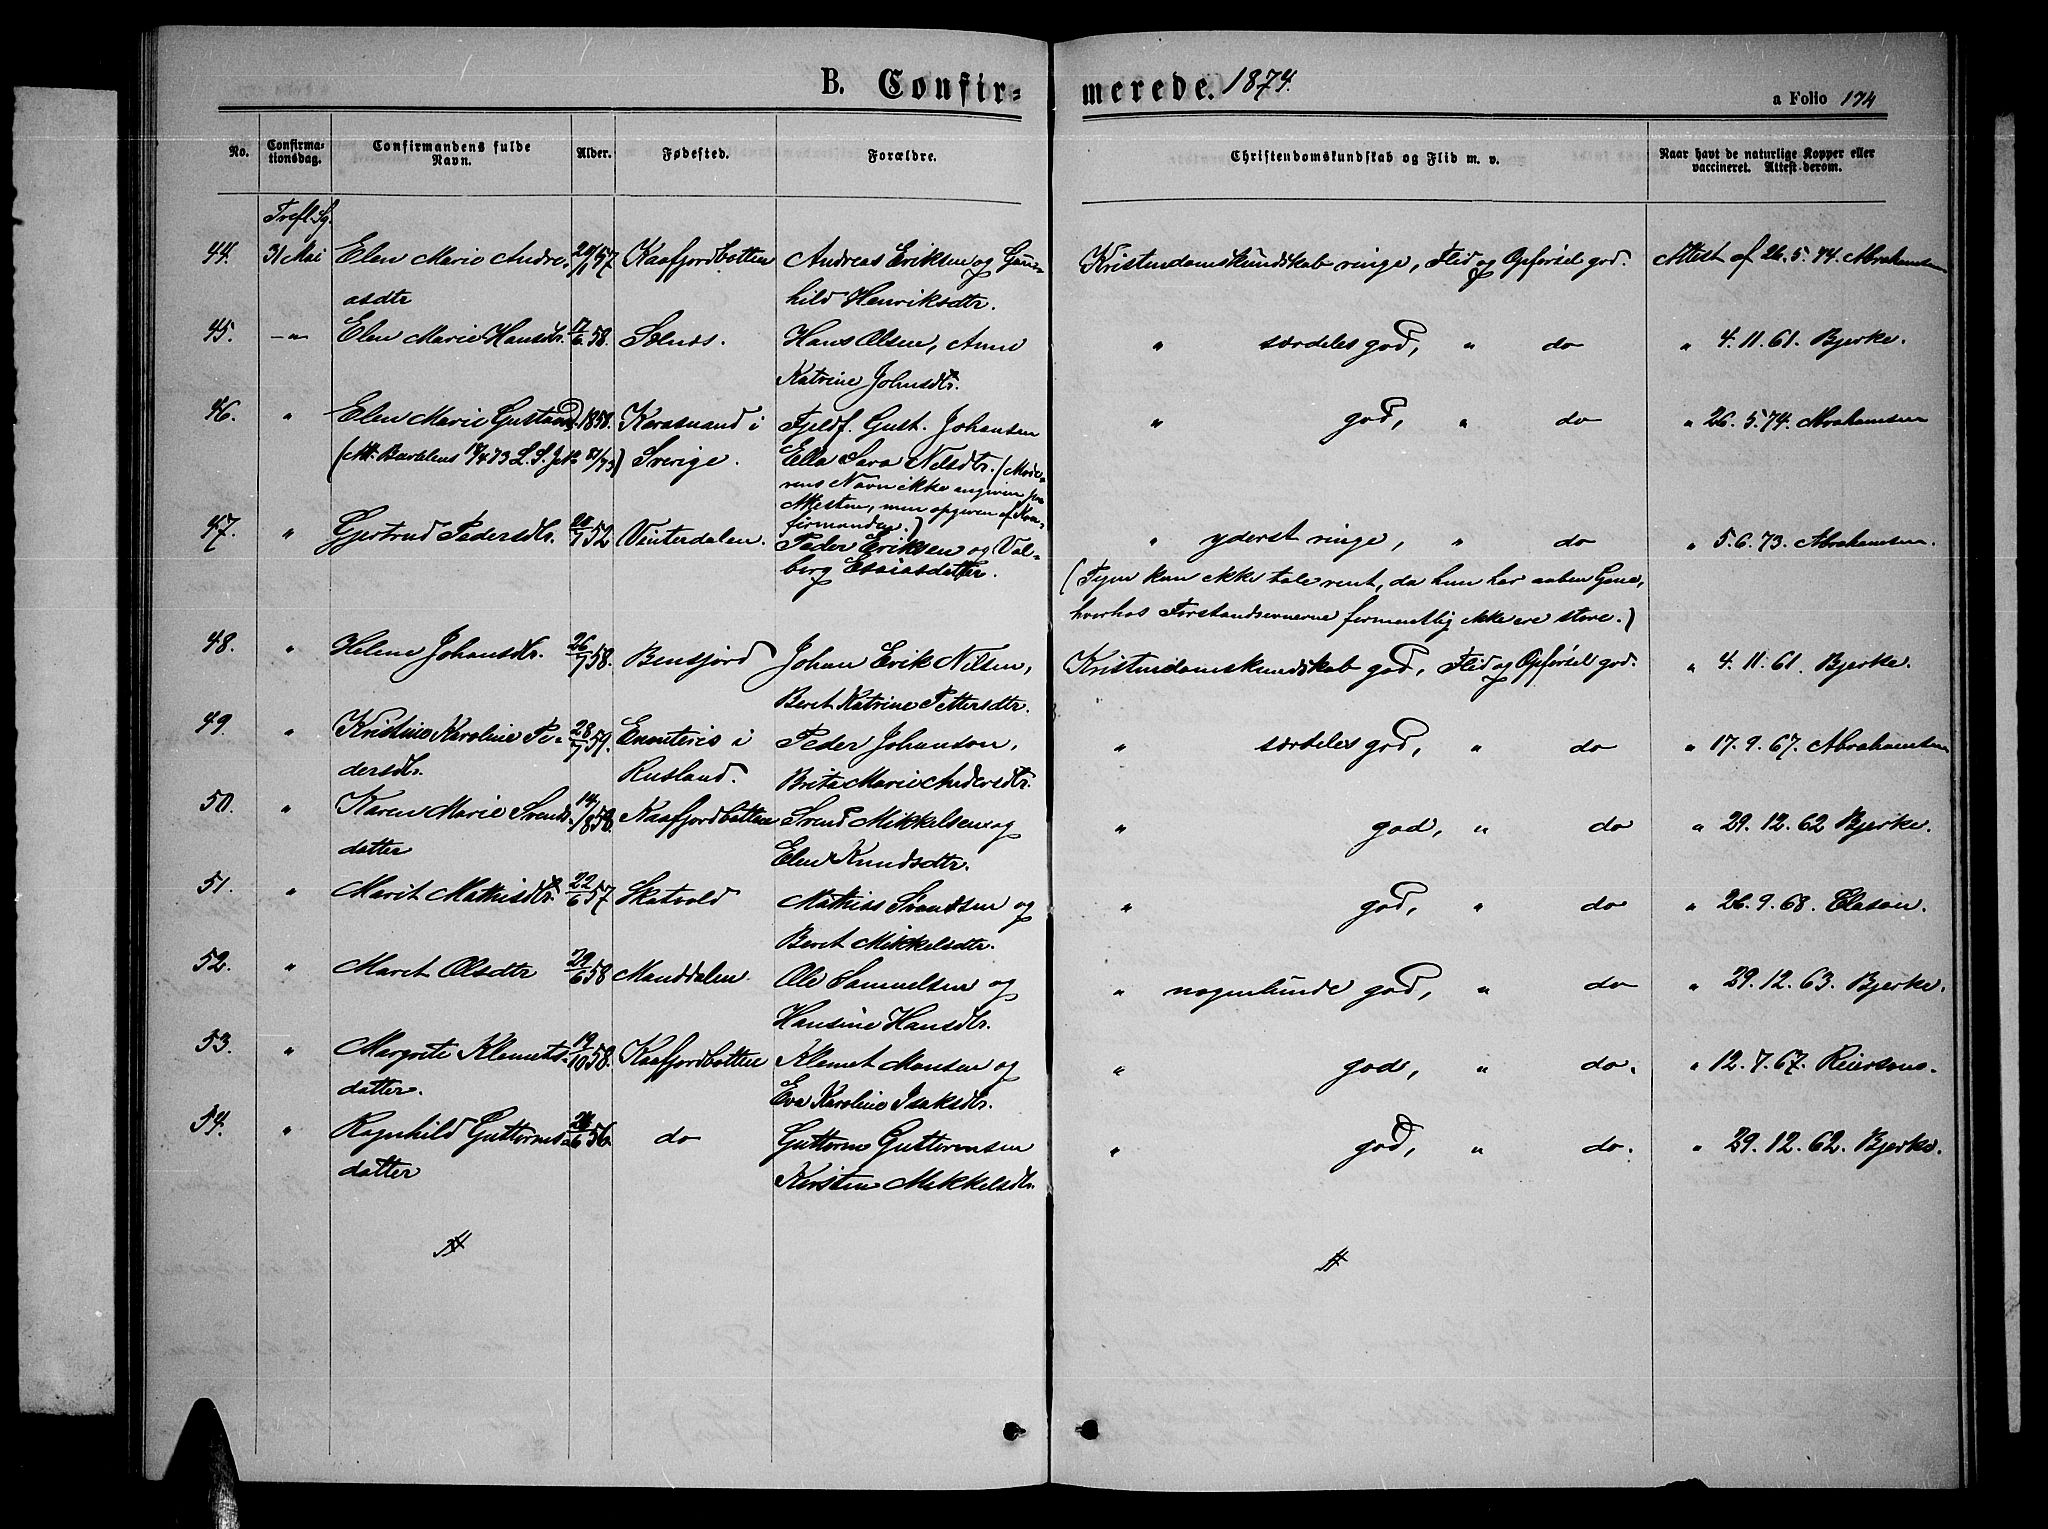 B. Confir=
merede. 1874.
a Folio 174
No. Confirma-tionsdag. Confirmandens fulde Navn. Alder. Fødested. Forældre. Christendomskundskab og Flid m. v. Naar havt de naturlige Kopper eller vaccineret. Attest derom.
44. 31 Mai Elen Marie Andre- 57 Kaafjordbotten Andreas Eriksen og Gun- Kristendomskundskab ringe, Flid og Opførsel god. Attest af 26. 5. 74. Abrahamsen
asdtr hild Henriksdtr.
45. -"- Elen Marie Hansdtr. 17/6 58. Solnes. Hans Olsen, Anne " særdeles god, " do " 4. 11. 61. Bjerke.
Katrine Johnsdtr.
46. " Elen Marie Gustavsd. 1858. Karasuand i Fjeldf. Gust. Johansen " god, " do " 26. 5. 74. Abrahamsen
Sverige. Ella Sara Nilsdtr. (Mode-
rens Navn ikke angiven paa
Attesten, men opgiven af Kon-
firmanden.)
47. " Gjertrud Pedersdtr. 52 Vinterdalen. Peder Eriksen og Val- " yderst ringe, " do " 5. 6. 73. Abrahamsen.
berg Esaiasdatter. (Pigen kan ikke tale rent, da hun har aaben Gane,
hvorhos Forstandsevnerne formentlig ikke ere store.)
48. " Helene Johansdtr. 26/7 58. Bensjord Johan Erik Nilsen, Kristendomskundskab god, Flid og Opførsel god. " 4. 11. 61. Bjerke.
Beret Katrine Pettersdtr.
49. " Kristine Karoline Pe- 28/7 59. Enonteris i Peder Johanson, " særdeles god, " do " 17. 9. 67. Abrahamsen
dersdtr. Rusland. Brita Marie Andersdtr.
50. " Karen Marie Svends- 14/8 58. Kaafjordbotten Svend Mikkelsen og " god, " do " 29. 12. 62 Bjerke.
datter Elen Knudsdtr.
51. " Marit Mathisdtr. 22/6 57 Skatvold Mathias Svendsen og " god, " do " 26. 9. 68. Clason.
Beret Mikkelsdtr.
52. " Maret Olsdtr 29/6 58 Manddalen. Ole Samuelsen og " nogenlunde god, " do " 29. 12. 63. Bjerke.
Hansine Hansdtr.
53. " Margrete Klemets- 19/10 58. Kaafjordbotten Klemet Monsen og " god, " do. " 12. 7. 67. Reierson.
datter. Eva Karoline Isaksdtr.
54. " Ragnhild Guttorms- 56. do Guttorm Guttormsen " god, " do. " 29. 12. 62. Bjerke.
datter Kirsten Mikkelsdtr.